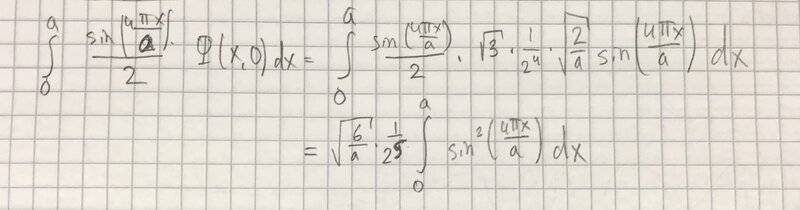 ∫₀ᵃ sin(4πx/a)/2 · Ψ(x,0) dx = ∫₀ᵃ sin(4πx/a)/2 · √3 · 1/2⁴ · √(2/a) sin(4πx/a) dx
= √(6/a) · 1/2⁵ ∫₀ᵃ sin²(4πx/a) dx